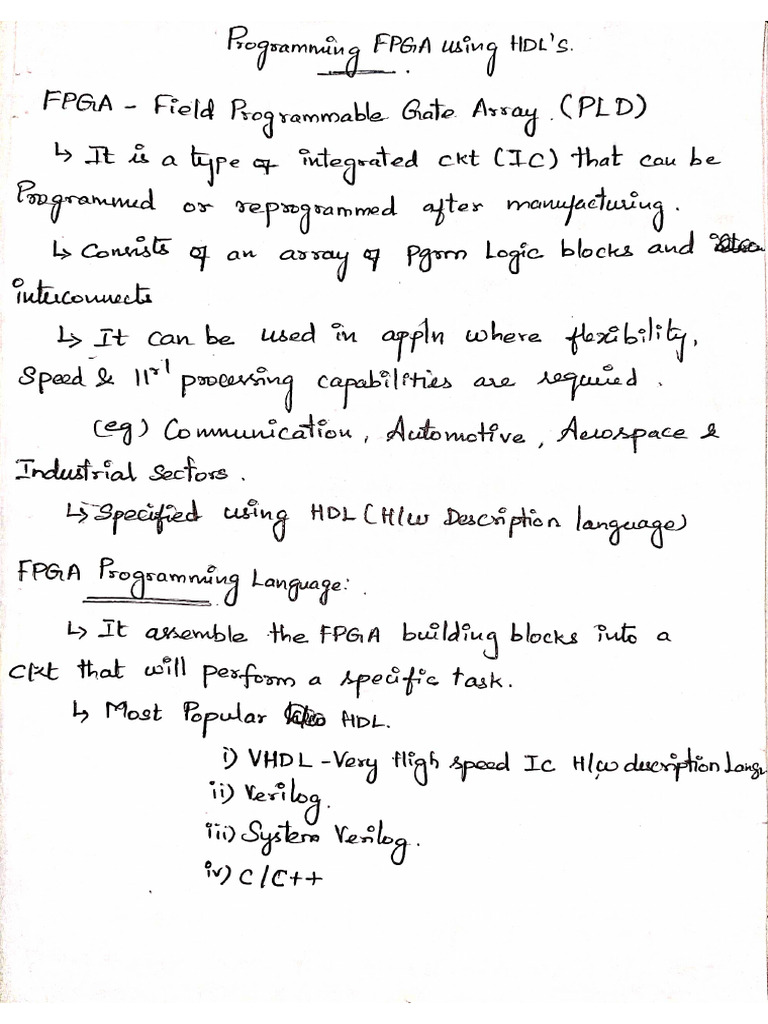 Programming FPGA using HDL's.
FPGA - Field Programmable Gate Array. (PLD)
↳ It is a type of integrated ckt (IC) that can be
Programmed or reprogrammed after manufacturing.
↳ Consists of an array of pgrm Logic blocks and
interconnects
↳ It can be used in appln where flexibility,
Speed & 11rl processing capabilities are required.
(eg) Communication, Automotive, Aerospace &
Industrial Sectors.
↳ Specified using HDL (H/w Description language)
FPGA Programming Language:
↳ It assemble the FPGA building blocks into a
ckt that will perform a specific task.
↳ Most Popular HDL.
i) VHDL - Very High speed IC H/w description Lang
ii) Verilog.
iii) System Verilog.
iv) C/C++